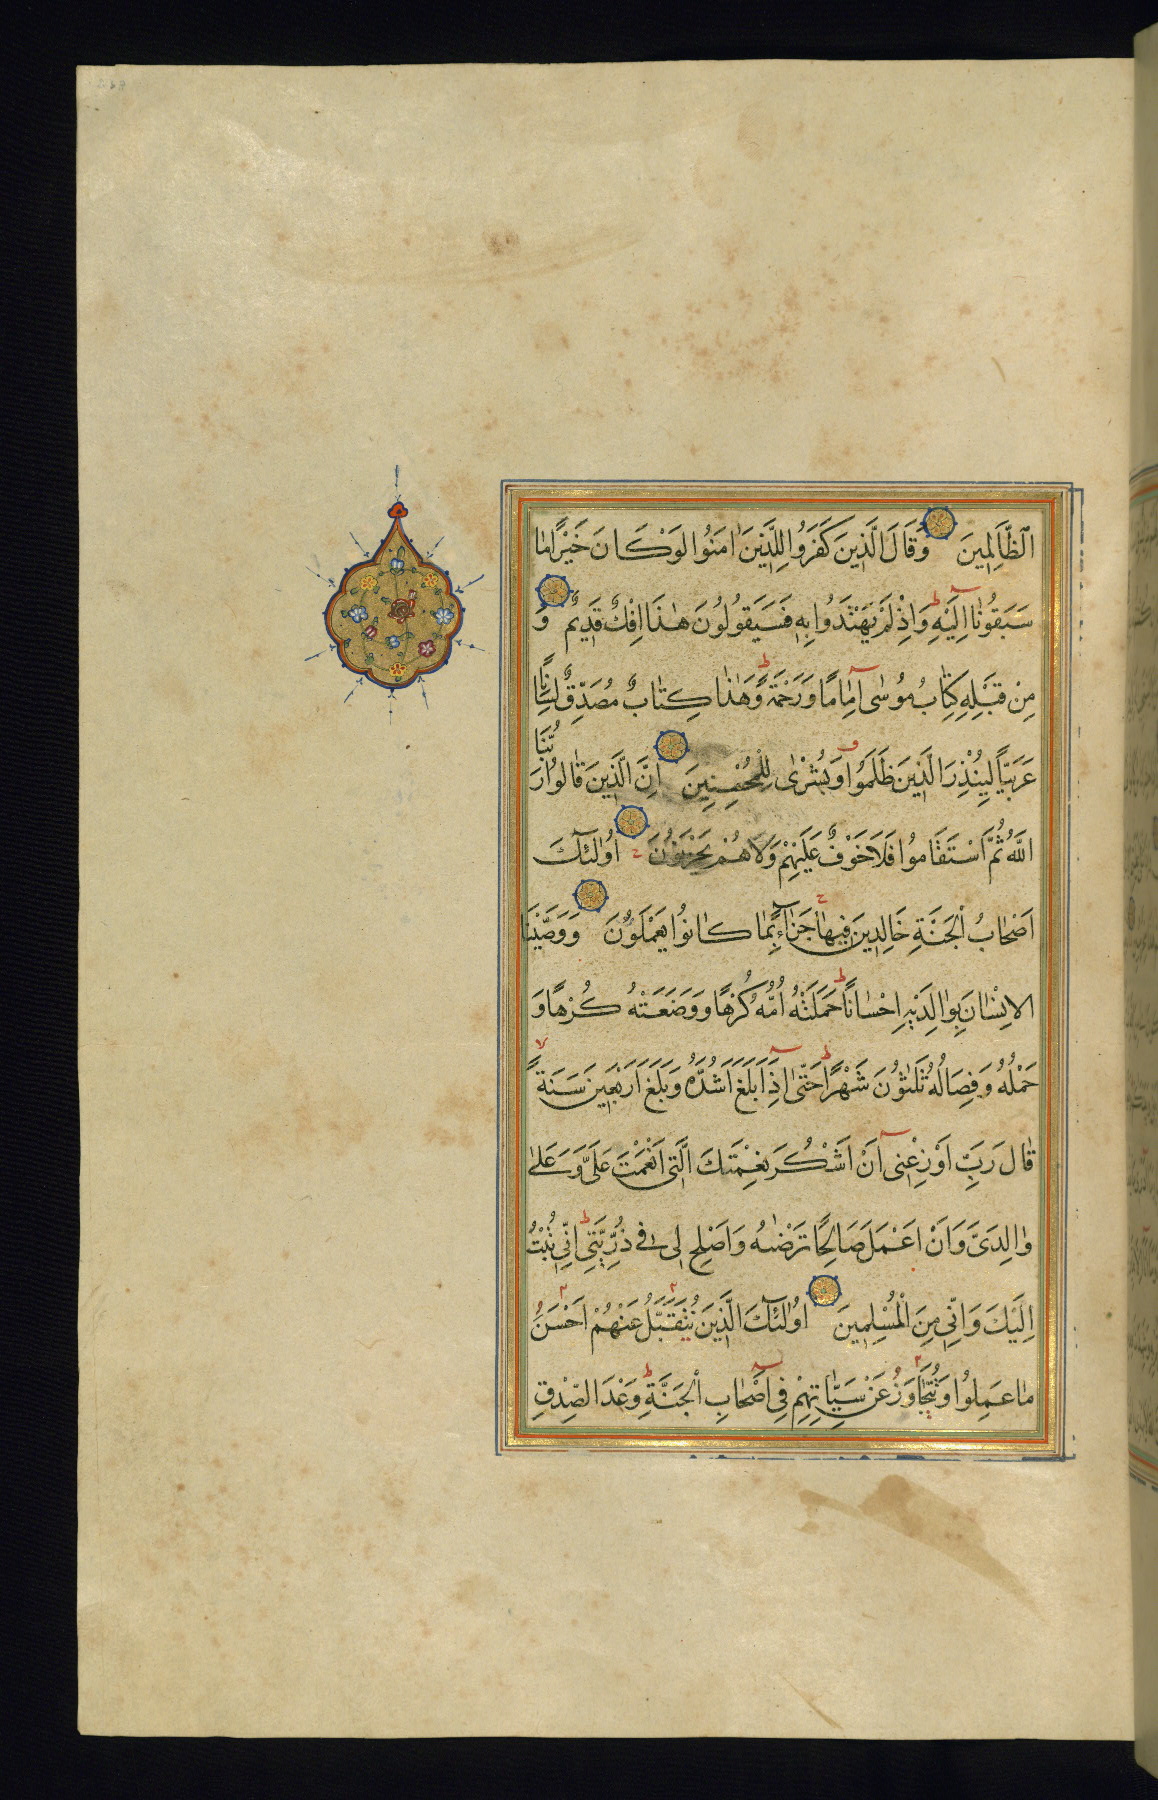 ٱلظَّالِمِينَ وَقَالَ الَّذِينَ كَفَرُوا لِلَّذِينَ اٰمَنُوا لَوْ كَانَ خَيْرًا مَا
سَبَقُونَا اِلَيْهِ وَاِذْ لَمْ يَهْتَدُوا بِهٖ فَسَيَقُولُونَ هٰذَا اِفْكٌ قَدِيمٌ وَ
مِنْ قَبْلِهِ كِتَابُ مُوسٰى اِمَامًا وَرَحْمَةً وَهٰذَا كِتَابٌ مُصَدِّقٌ لِسَانًا
عَرَبِيًّا لِيُنْذِرَ الَّذِينَ ظَلَمُوا وَبُشْرٰى لِلْمُحْسِنِينَ اِنَّ الَّذِينَ قَالُوا رَبُّنَا
اللَّهُ ثُمَّ اسْتَقَامُوا فَلَا خَوْفٌ عَلَيْهِمْ وَلَا هُمْ يَحْزَنُونَ اُولٰئِكَ
اَصْحَابُ الْجَنَّةِ خَالِدِينَ فِيهَا جَزَاءً بِمَا كَانُوا يَعْمَلُونَ وَوَصَّيْنَا
الاِنْسَانَ بِوَالِدَيْهِ اِحْسَانًا حَمَلَتْهُ اُمُّهُ كُرْهًا وَوَضَعَتْهُ كُرْهًا وَ
حَمْلُهُ وَفِصَالُهُ ثَلٰثُونَ شَهْرًا حَتّٰى اِذَا بَلَغَ اَشُدَّهُ وَبَلَغَ اَرْبَعِينَ سَنَةً
قَالَ رَبِّ اَوْزِعْنِى اَنْ اَشْكُرَ نِعْمَتَكَ الَّتِى اَنْعَمْتَ عَلَىَّ وَعَلٰى
وَالِدَىَّ وَاَنْ اَعْمَلَ صَالِحًا تَرْضٰهُ وَاَصْلِحْ لِى فِى ذُرِّيَّتِى اِنِّى تُبْتُ
اِلَيْكَ وَاِنِّى مِنَ الْمُسْلِمِينَ اُولٰئِكَ الَّذِينَ نَتَقَبَّلُ عَنْهُمْ اَحْسَنَ
مَا عَمِلُوا وَنَتَجَاوَزُ عَنْ سَيِّاٰتِهِمْ فِى اَصْحَابِ الْجَنَّةِ وَعْدَ الصِّدْقِ